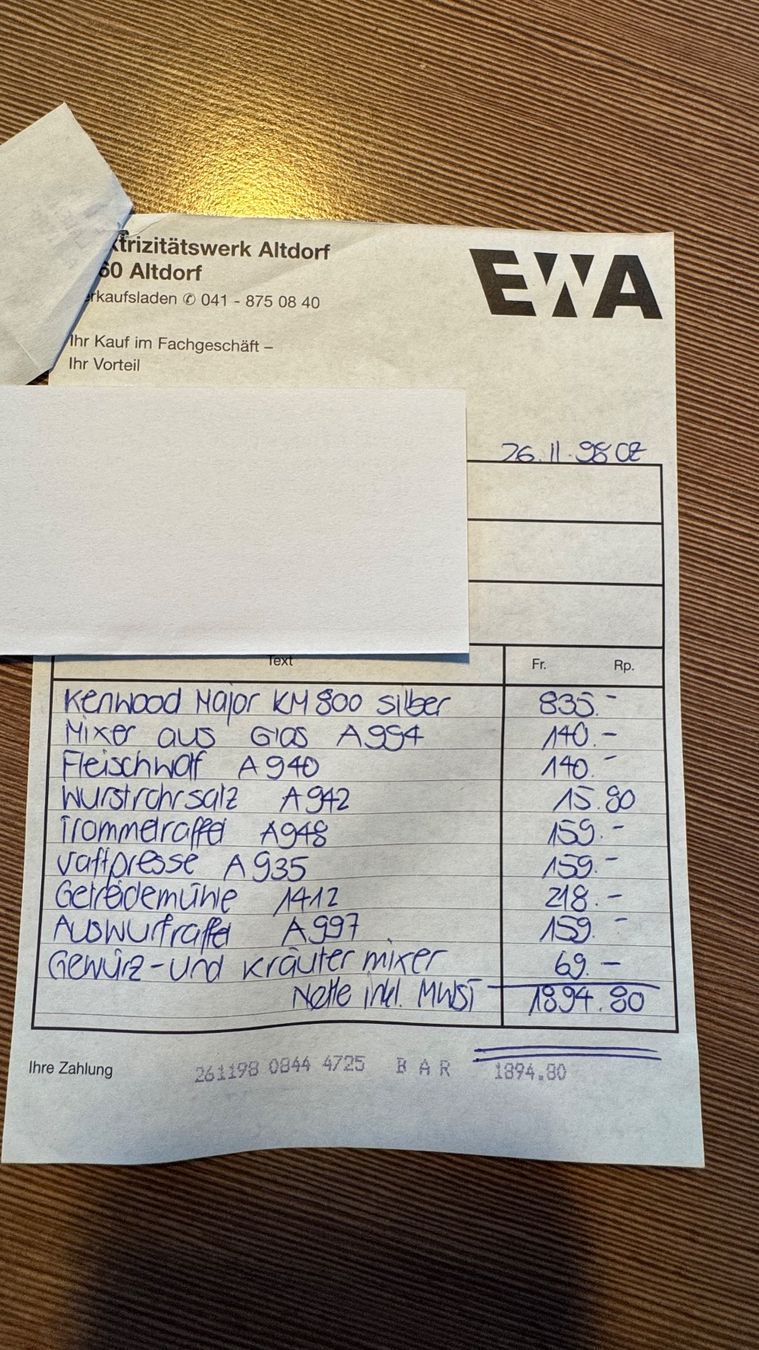 ktrizitätswerk Altdorf
60 Altdorf
rkaufsladen ✆ 041 - 875 08 40
EWA
Ihr Kauf im Fachgeschäft –
Ihr Vorteil
26.11.98
Text Fr. Rp.
Kenwood Major KM 800 silber 835.-
Mixer aus Glas A994 140.-
Fleischwolf A940 140.-
Wurstrohrsatz A942 15.80
Trommelraffel A948 159.-
Saftpresse A935 159.-
Getreidemühle 1412 218.-
Auswurfraffel A997 159.-
Gewürz-und Kräutermixer 69.-
Netto inkl. MWST 1894.80
Ihre Zahlung 261198 0844 4725 BAR 1894.80